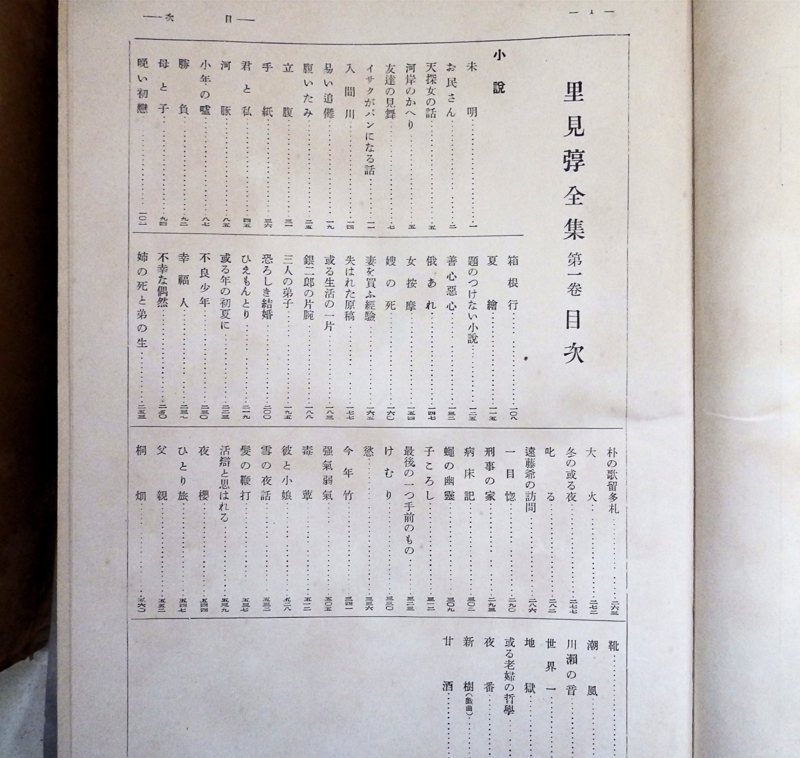 — 1 —
— 目次 —
里見弴全集 第一巻 目次
小說
未明 一
お民さん 二
天探女の話 五
河岸のかへり 五
友達の見舞 七
イサクがパンになる話 一一
入間川 一四
易い追儺 一九
腹いたみ 二五
立腹 三一
手紙 三六
君と私 四五
河豚 八五
小年の噓 八七
勝負 九二
母と子 九四
晚い初戀 一〇一
箱根行 一〇八
夏繪 一一五
題のつけない小說 一二五
善心惡心 一三二
俄あれ 一四七
女按摩 一五四
嫂の死 一六〇
妻を買ふ經驗 一六三
失はれた原稿 一七七
或る生活の一片 一八三
銀二郞の片腕 一八八
三人の弟子 一九五
恐ろしき結婚 二〇〇
ひえもんとり 二一九
或る年の初夏に 二二三
不良少年 二三〇
幸福人 二三七
不幸な偶然 二五〇
姉の死と弟の生 二五三
朴の歌留多札 二六三
大火 二七三
冬の或る夜 二七七
叱る 二八二
遠藤爺の訪問 二八六
一目惚 二九〇
刑事の家 二九三
病床記 三〇三
蠅の幽靈 三〇九
子ころし 三一二
最後の一つ手前のもの 三二三
けむり 三三〇
慾 三三六
今年竹 三四一
强氣弱氣 五〇五
毒蕈 五一二
彼と小娘 五二八
雪の夜話 五三二
髮の鞭打 五三七
活辯と思はれる 五三九
夜櫻 五四四
ひとり旅 五四七
父親 五五二
桐畑 五六〇
靴
潮風
川瀨の音
世界一
地獄
或る老婦の哲學
夜番
新樹(戲曲)
甘酒